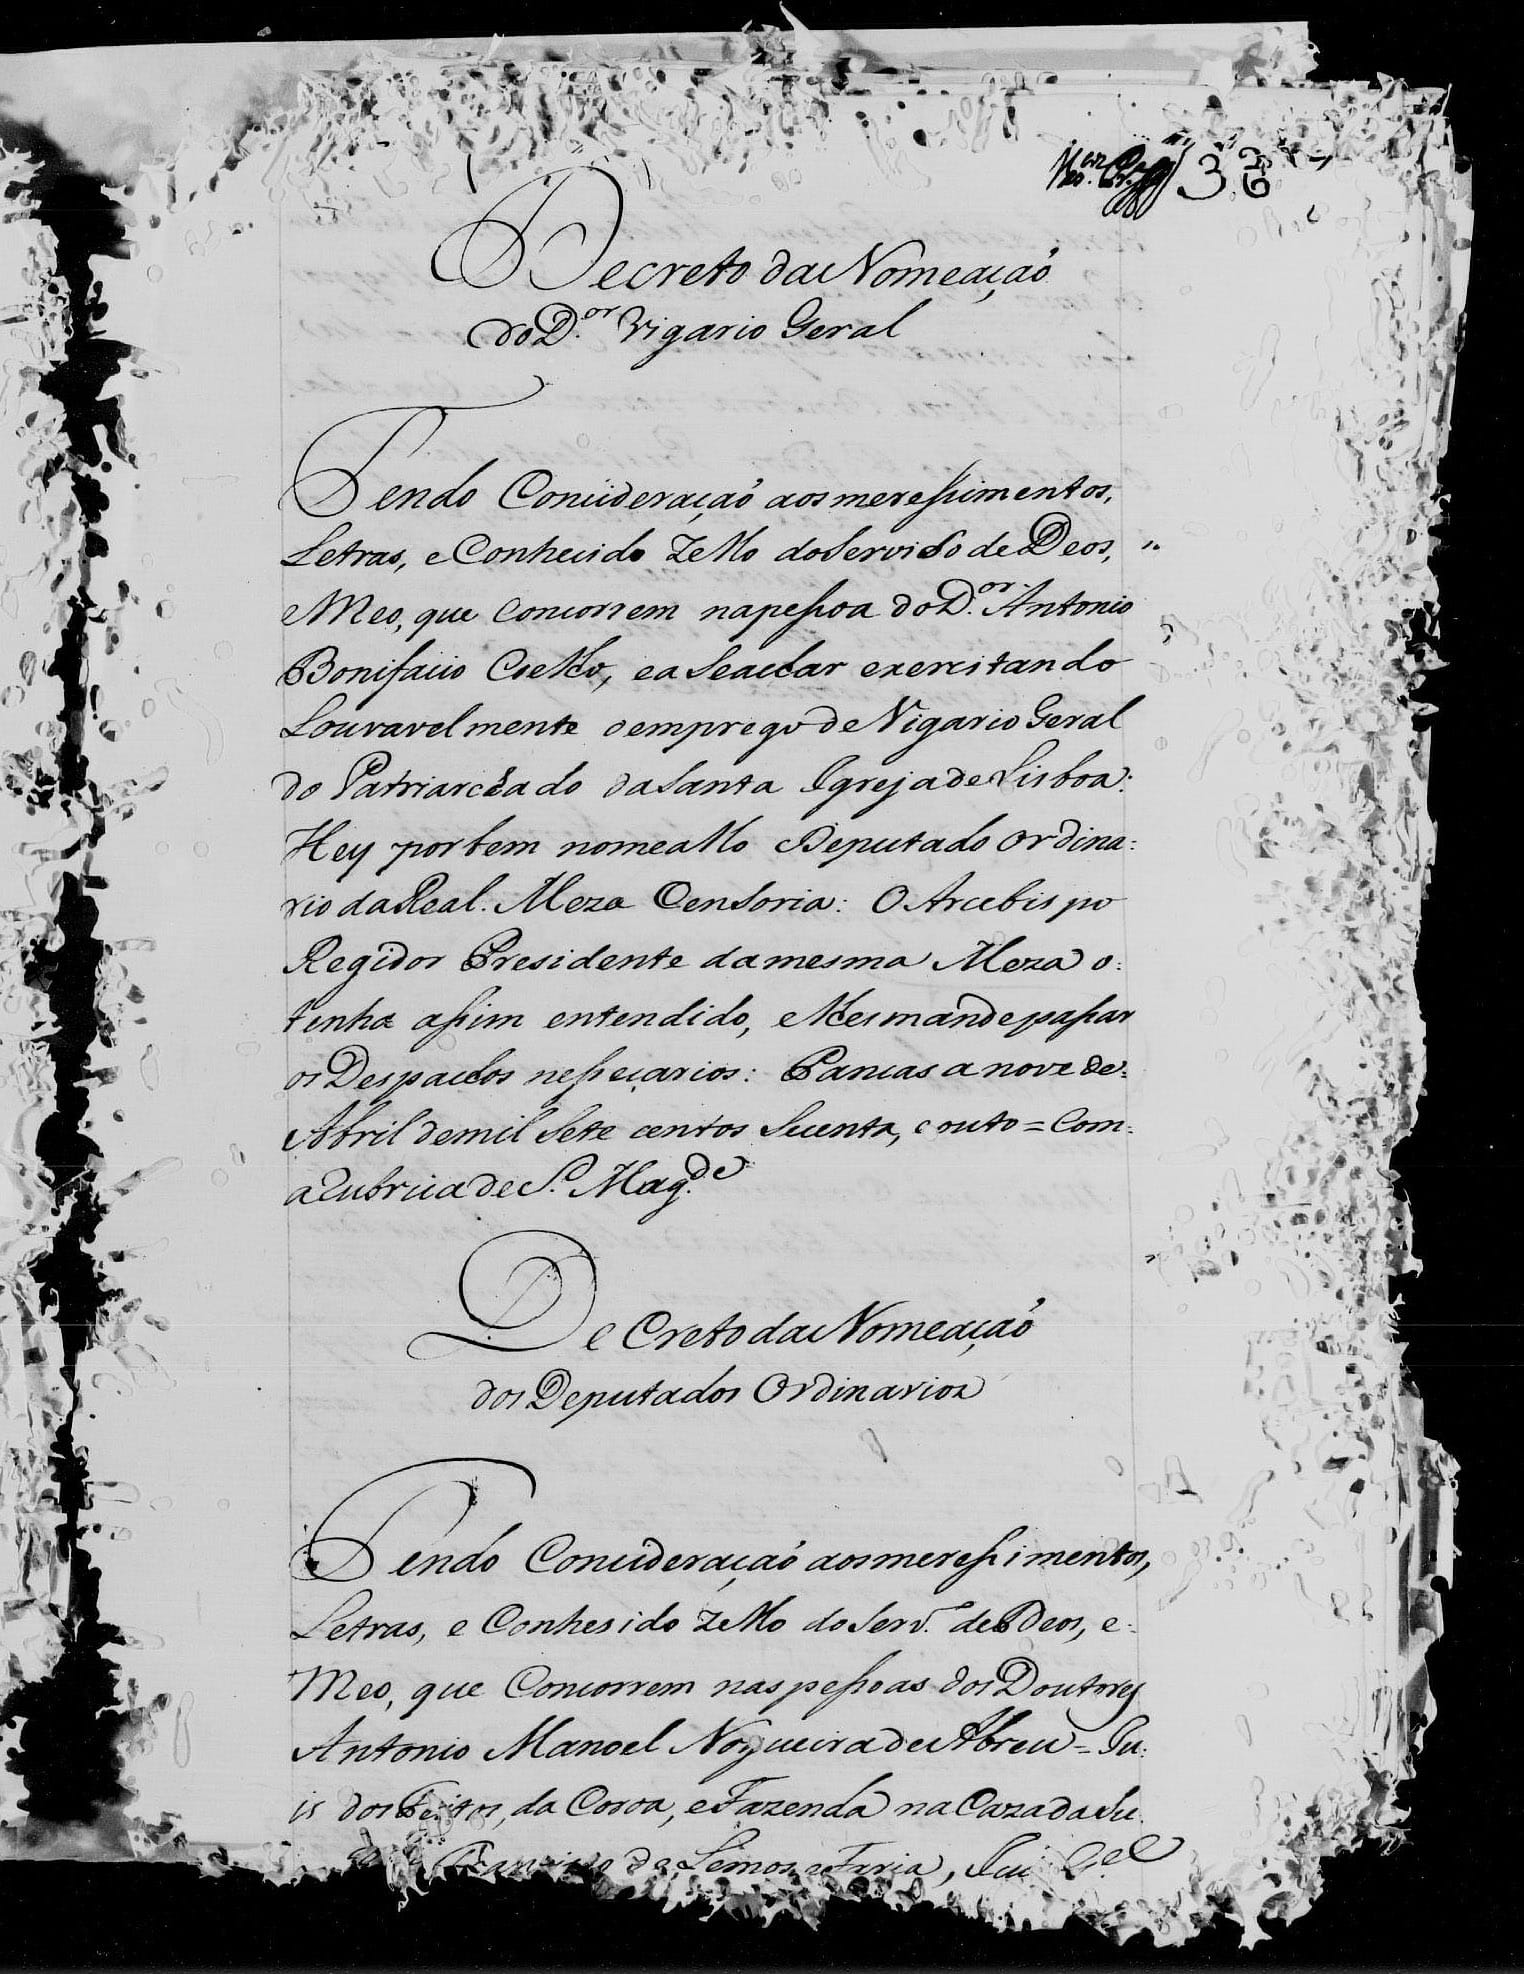 36
Decreto da Nomeação
do D.or Vigario Geral
Tendo Concideração aos meressimentos,
Letras, e Conhecido Zello do Serviso de Deos,
e Meo, que concorrem na pessoa do D.or Antonio
Bonifacio Coelho, e a Seachar exercitando
Louvavelmente o emprego de Vigario Geral
do Patriarchado da Santa Igreja de Lisboa:
Hey por bem nomeallo Deputado Ordina:
rio da Real. Meza Censoria: O Arcebispo
Regidor Prezidente da mesma Meza o:
tenha assim entendido, e lhes mande passar
os Despachos nesseçarios: Pancas a nove de:
Abril de mil Sete centos Secenta, e outo = Com:
a Rubrica de S.ª Mag.de
DeCreto da Nomeação
dos Deputados Ordinarios
Tendo Concideração aos meressimentos,
Letras, e Conhesido Zello do Serv.º de Deos, e:
Meo, que Concorrem nas pessoas dos Doutores
Antonio Manoel Nogueira de Abreu = Ju:
is dos Feitos, da Coroa, e Fazenda na Caza da Su
Francisco de Lemos e Faria, Jui G.el